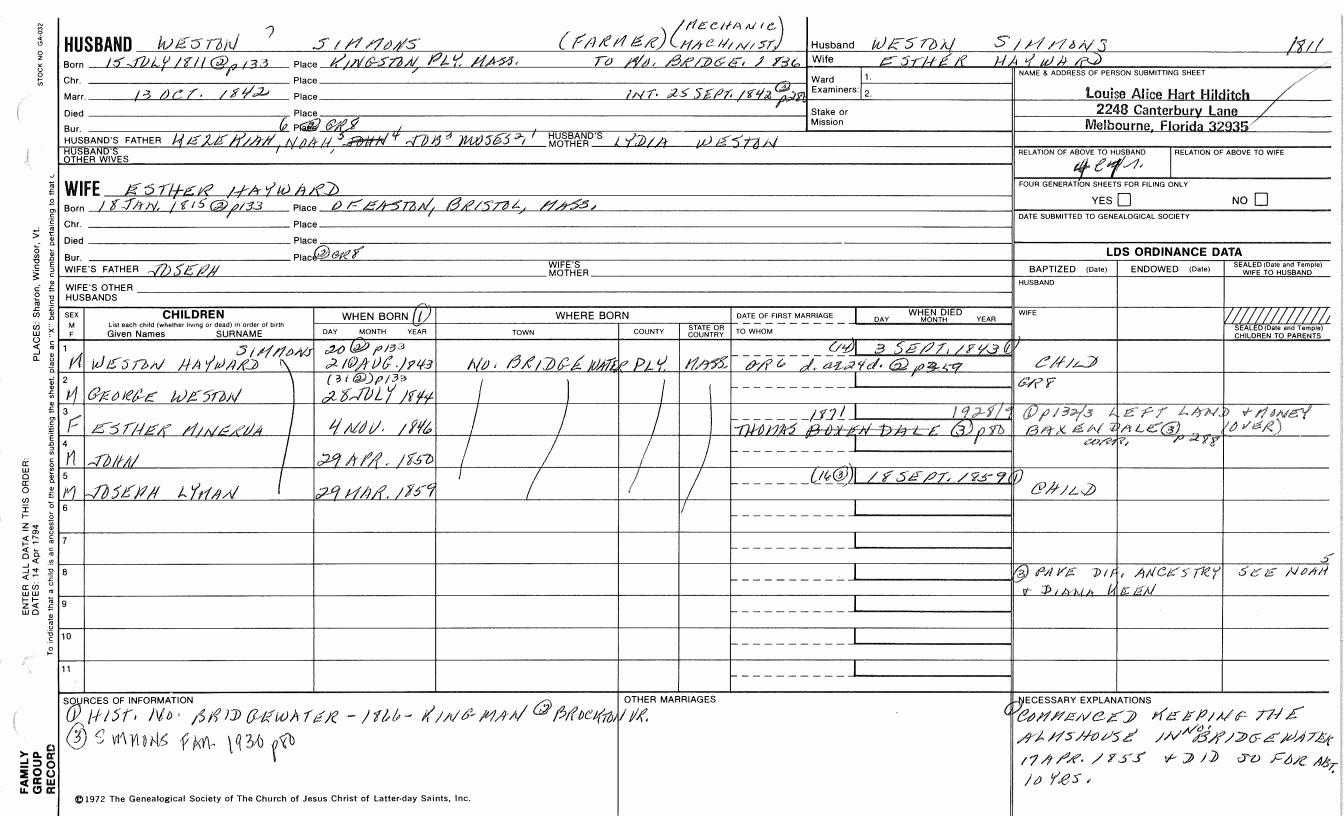 STOCK NO. GA-032
PLACES: Sharon, Windsor, Vt.
ENTER ALL DATA IN THIS ORDER:
DATES: 14 Apr 1794
To indicate that a child is an ancestor of the person submitting the sheet, place an "X" behind the number pertaining to that c
FAMILY GROUP RECORD
HUSBAND WESTON ? SIMMONS (FARMER) (MECHANIC) (MACHINIST)
Born 15 JULY 1811 ② p133 Place KINGSTON, PLY. MASS. TO NO. BRIDGE. 1836
Chr. Place
Marr. 13 OCT. 1842 Place INT. 25 SEPT. 1842 ② p288
Died Place
Bur. Place ② GR8
HUSBAND'S FATHER HEZEKIAH, 6 NOAH, 5 JOHN 4 JOB 3 MOSES 2, 1 HUSBAND'S MOTHER LYDIA WESTON
HUSBAND'S OTHER WIVES
WIFE ESTHER HAYWARD
Born 18 JAN. 1815 ② p133 Place OF EASTON, BRISTOL, MASS.
Chr. Place
Died Place
Bur. Place ② GR8
WIFE'S FATHER JOSEPH WIFE'S MOTHER
WIFE'S OTHER HUSBANDS
Husband WESTON SIMMONS 1811
Wife ESTHER HAYWARD
Ward Examiners: 1. 2.
Stake or Mission
NAME & ADDRESS OF PERSON SUBMITTING SHEET
Louise Alice Hart Hilditch
2248 Canterbury Lane
Melbourne, Florida 32935
RELATION OF ABOVE TO HUSBAND RELATION OF ABOVE TO WIFE
FOUR GENERATION SHEETS FOR FILING ONLY
YES NO
DATE SUBMITTED TO GENEALOGICAL SOCIETY
LDS ORDINANCE DATA
BAPTIZED (Date) ENDOWED (Date) SEALED (Date and Temple) WIFE TO HUSBAND
HUSBAND
WIFE
SEALED (Date and Temple) CHILDREN TO PARENTS
SEX M F CHILDREN WHEN BORN ① WHERE BORN DATE OF FIRST MARRIAGE WHEN DIED
List each child (whether living or dead) in order of birth
Given Names SURNAME DAY MONTH YEAR TOWN COUNTY STATE OR COUNTRY TO WHOM DAY MONTH YEAR
1 SIMMONS 20 ② p133 (14) 3 SEPT. 1843 ①
M WESTON HAYWARD 21 ① AUG. 1843 NO. BRIDGEWATER PLY. MASS OR 6 d. a. 24d. ② p359 CHILD
2 (31 ②) p133 GR8
M GEORGE WESTON 28 JULY 1844
3 1871 1928/9 ① p132/3 LEFT LAND & MONEY
F ESTHER MINERVA 4 NOV. 1846 THOMAS BOXENDALE ③ p80 BAXENDALE ③ (OVER)
4 corr. p288
M JOHN 29 APR. 1850
5 (16 ③) 18 SEPT. 1859 ①
M JOSEPH LYMAN 29 MAR. 1859 CHILD
6
7
8 ③ GAVE DIF. ANCESTRY SEE NOAH 5
& DIANA KEEN
9
10
11
SOURCES OF INFORMATION
① HIST. NO. BRIDGEWATER - 1866 - KINGMAN ② BROCKTON VR.
③ SIMMONS FAM. 1930 p80
©1972 The Genealogical Society of The Church of Jesus Christ of Latter-day Saints, Inc.
OTHER MARRIAGES
NECESSARY EXPLANATIONS
① COMMENCED KEEPING THE
ALMSHOUSE IN NO. BRIDGEWATER
17 APR. 1855 & DID SO FOR ABT.
10 YRS.